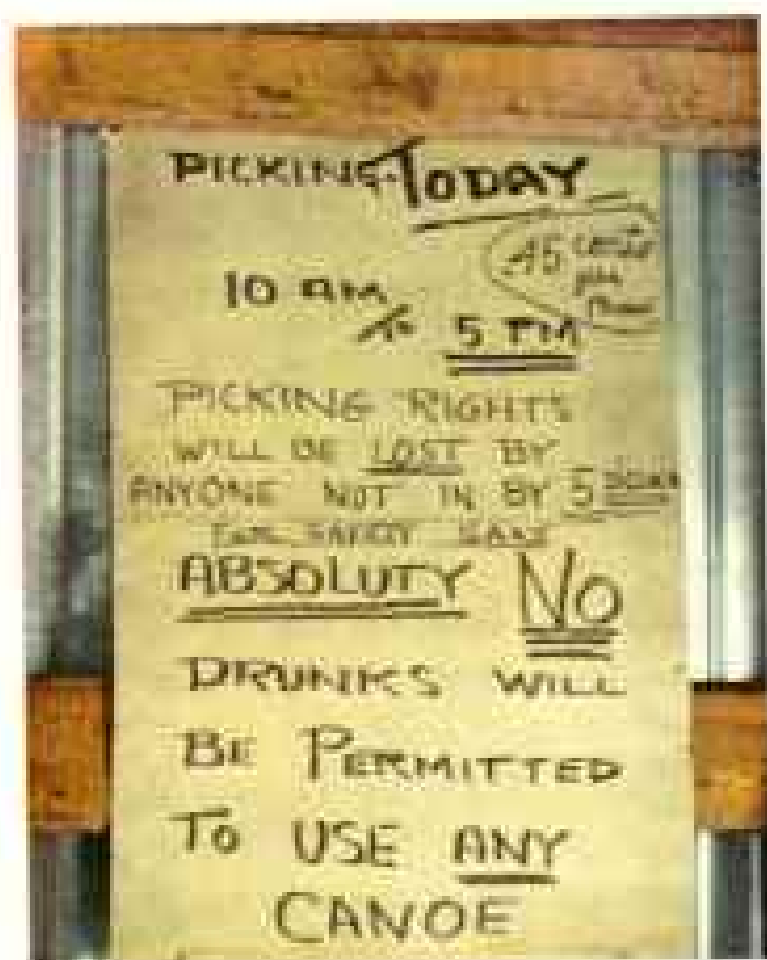 PICKING TODAY
45 cents
per
Pound
10 AM
TO 5 PM
PICKING RIGHTS
WILL BE LOST BY
ANYONE NOT IN BY 5
FOR SAFETY SAKE
ABSOLUTY NO
DRUNKS WILL
BE PERMITTED
TO USE ANY
CANOE